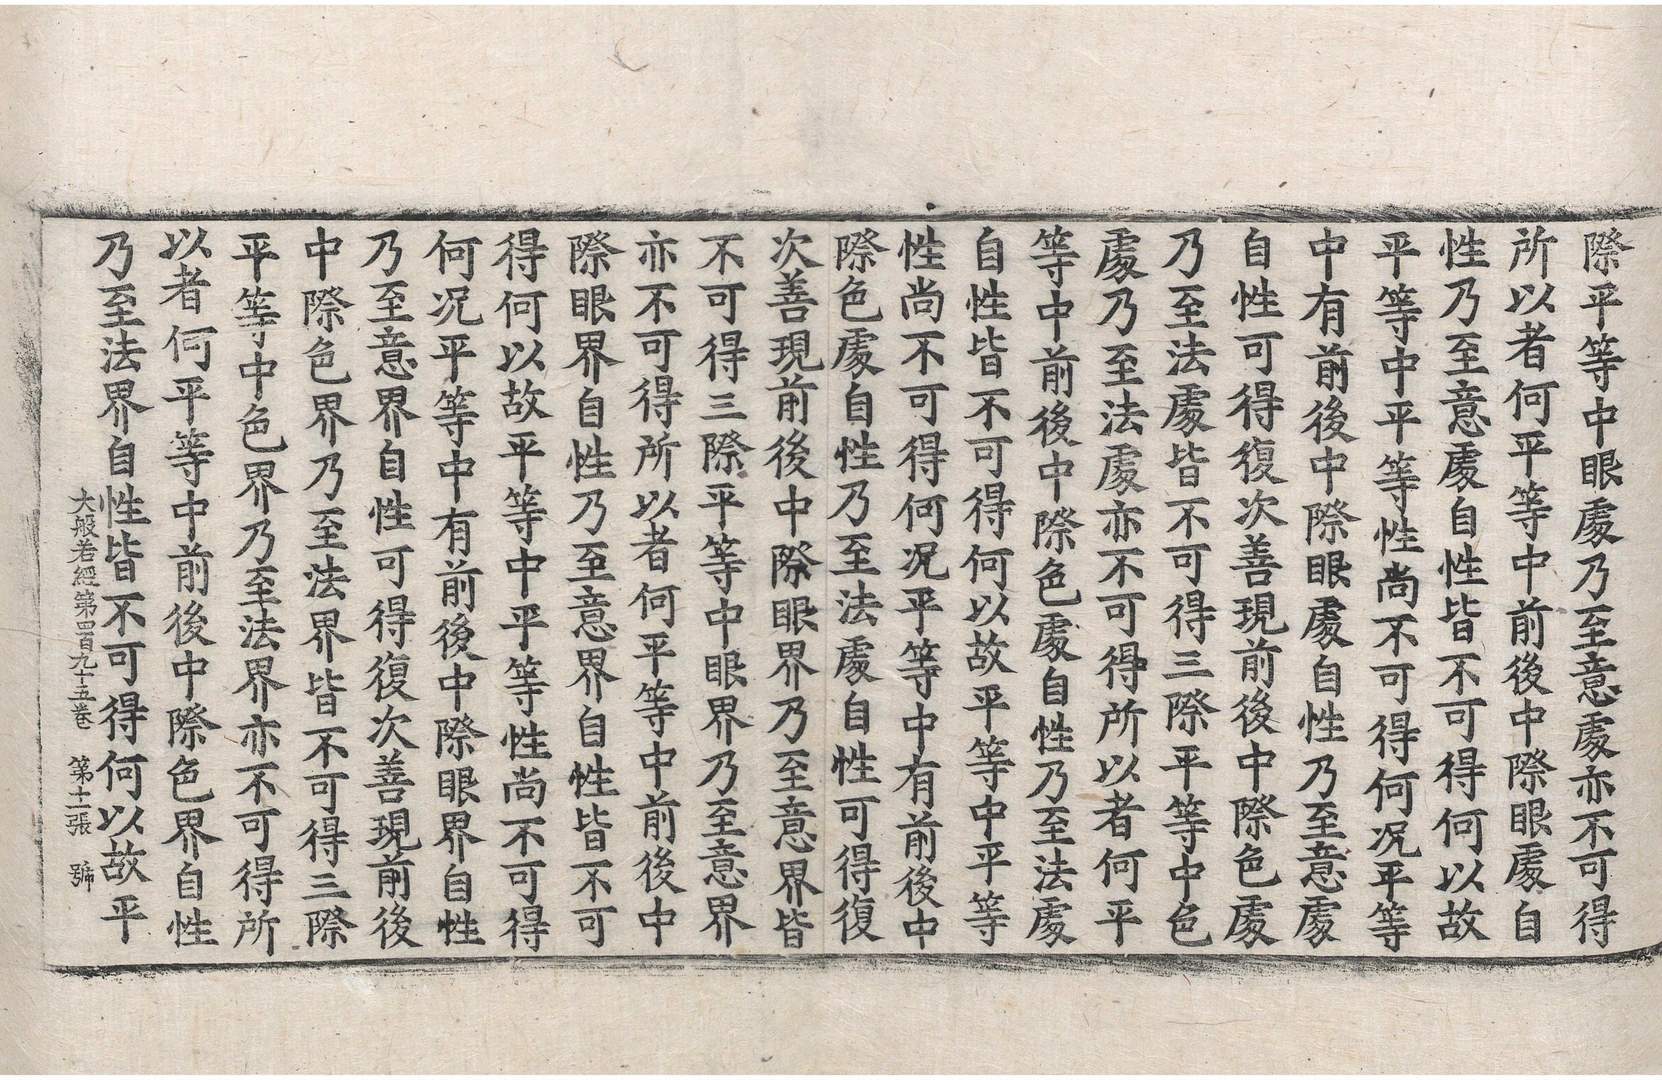 際平等中眼處乃至意處亦不可得
所以者何平等中前後中際眼處自
性乃至意處自性皆不可得何以故
平等中平等性尚不可得何况平等
中有前後中際眼處自性乃至意處
自性可得復次善現前後中際色處
乃至法處皆不可得三際平等中色
處乃至法處亦不可得所以者何平
等中前後中際色處自性乃至法處
自性皆不可得何以故平等中平等
性尚不可得何况平等中有前後中
際色處自性乃至法處自性可得復
次善現前後中際眼界乃至意界皆
不可得三際平等中眼界乃至意界
亦不可得所以者何平等中前後中
際眼界自性乃至意界自性皆不可
得何以故平等中平等性尚不可得
何况平等中有前後中際眼界自性
乃至意界自性可得復次善現前後
中際色界乃至法界皆不可得三際
平等中色界乃至法界亦不可得所
以者何平等中前後中際色界自性
乃至法界自性皆不可得何以故平
大般若經第四百九十五卷 第十一張 號